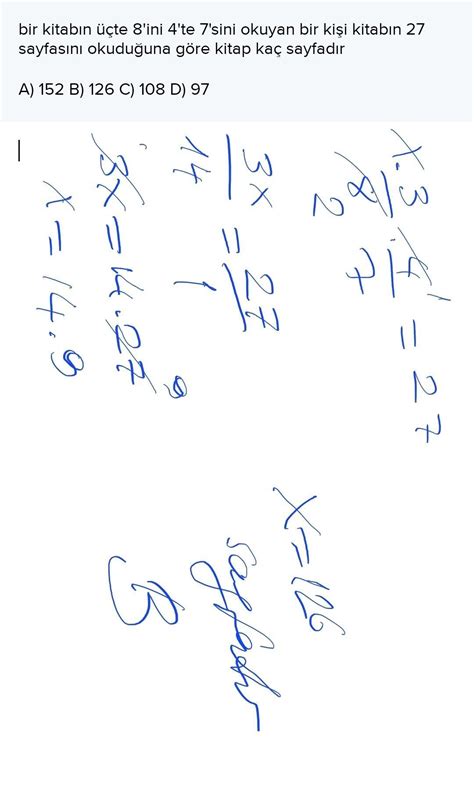 bir kitabın üçte 8'ini 4'te 7'sini okuyan bir kişi kitabın 27
sayfasını okuduğuna göre kitap kaç sayfadır
A) 152 B) 126 C) 108 D) 97
x.3/8 2 . 4/7 1 = 27
3x/14 = 27/1
3x = 14.27 9
x = 14.9
x = 126
sayfadır
B